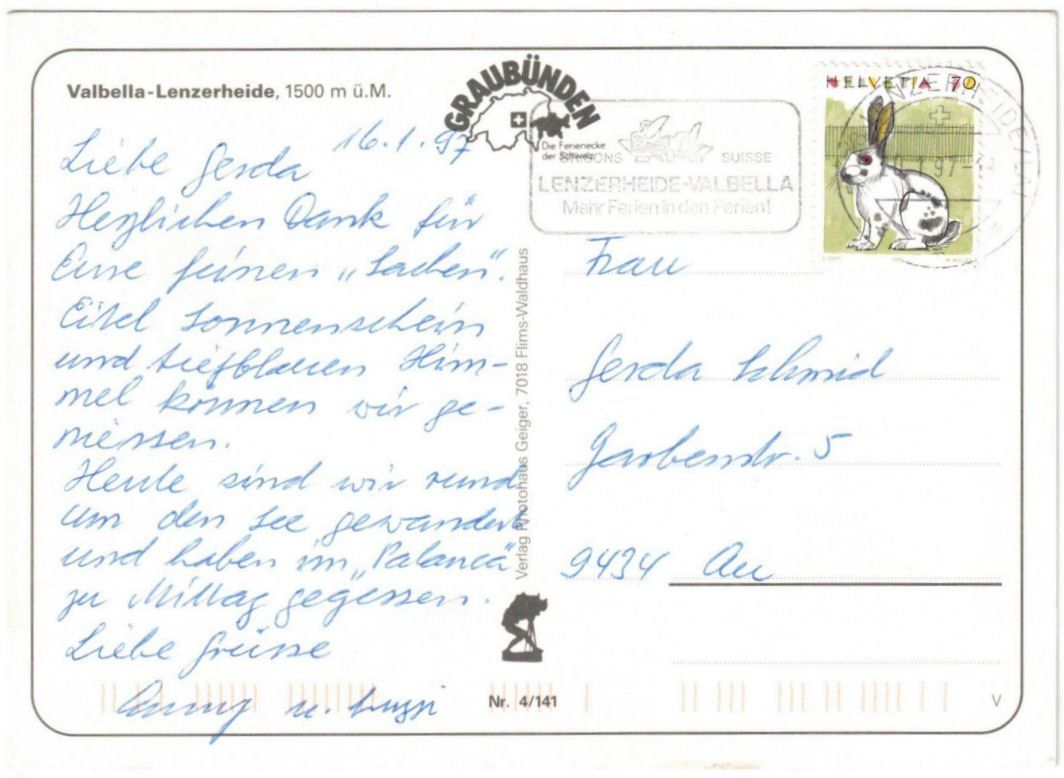 Valbella-Lenzerheide, 1500 m ü.M.
16.1.97
Liebe Gerda
Herzlichen Dank für
Eure feinen „Sachen“.
Eitel Sonnenschein
und tiefblauen Him-
mel können wir ge-
niessen.
Heute sind wir rund
um den See gewandert
und haben im „Palanca“
zu Mittag gegessen.
Liebe Grüsse
Anny u.
GRAUBÜNDEN
Die Ferienecke
der Schweiz
GRISONS SUISSE
LENZERHEIDE-VALBELLA
Mehr Ferien in den Ferien!
HELVETIA 70
LENZERHEIDE/LAI
Frau
Gerda Schmid
Gerbestr. 5
9434 Au
Verlag Photohaus Geiger, 7018 Flims-Waldhaus
Nr. 4/141
V